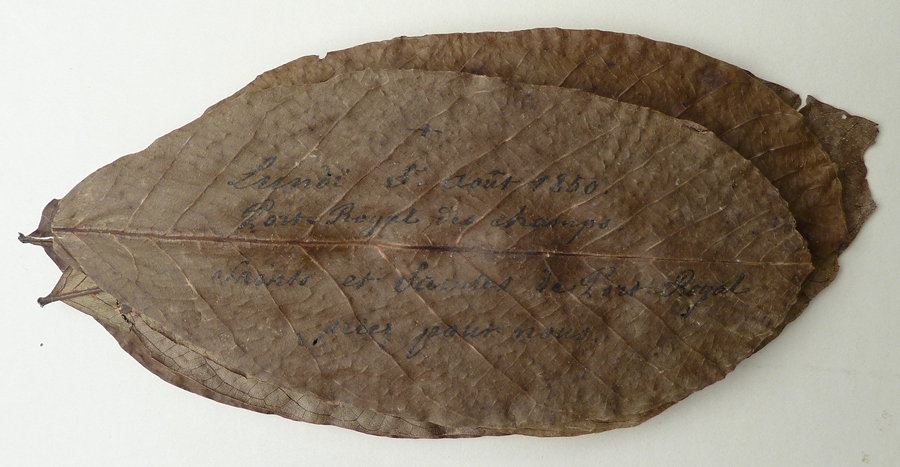 Lundi 5. Août 1850.
Port-Royal des champs
Saints et Saintes de Port-Royal
priez pour nous.